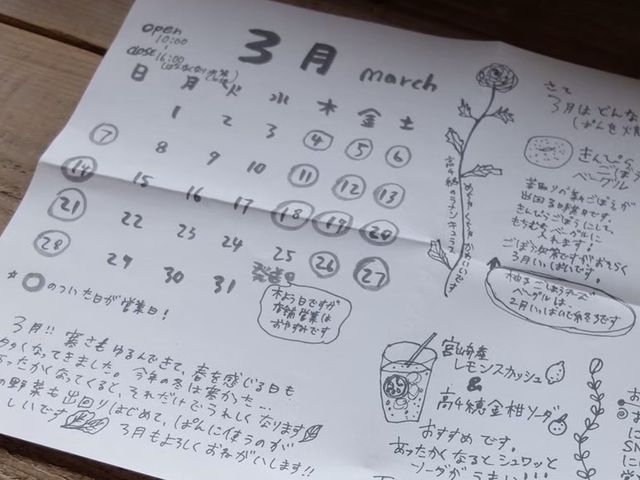 open
10:00
close 16:00
3月 march
日 月 火 水 木 金 土
1 2 3 4 5 6
7 8 9 10 11 12 13
14 15 16 17 18 19 20
21 22 23 24 25 26 27
28 29 30 31 発送日
木よう日ですが
店舗営業は
おやすみです
☆ ○のついた日が営業日!
3月!! 寒さもゆるんできて、春を感じる日も
多くなってきました。今年の冬は寒かった…
あったかくなってくると、それだけでうれしくなります
の野菜も出回りはじめて、ぱんに使うのが
しいです
3月もよろしくおねがいします!!
高千穂のラナンキュラス
さて
3月はどんな
きんぴら
ごぼう
ベーグル
出回る時期です。
きんぴらごぼうにして、
もちもちベーグルに
入れます!
ごぼう
3月いっぱいです。
柚子ごぼうチーズ
ベーグルは、
2月いっぱいで終了です
宮崎産
レモンスカッシュ
&
高千穂金柑ソーダ
おすすめです。
あったかくなるとシュワッと
ソーダがうまい!!!